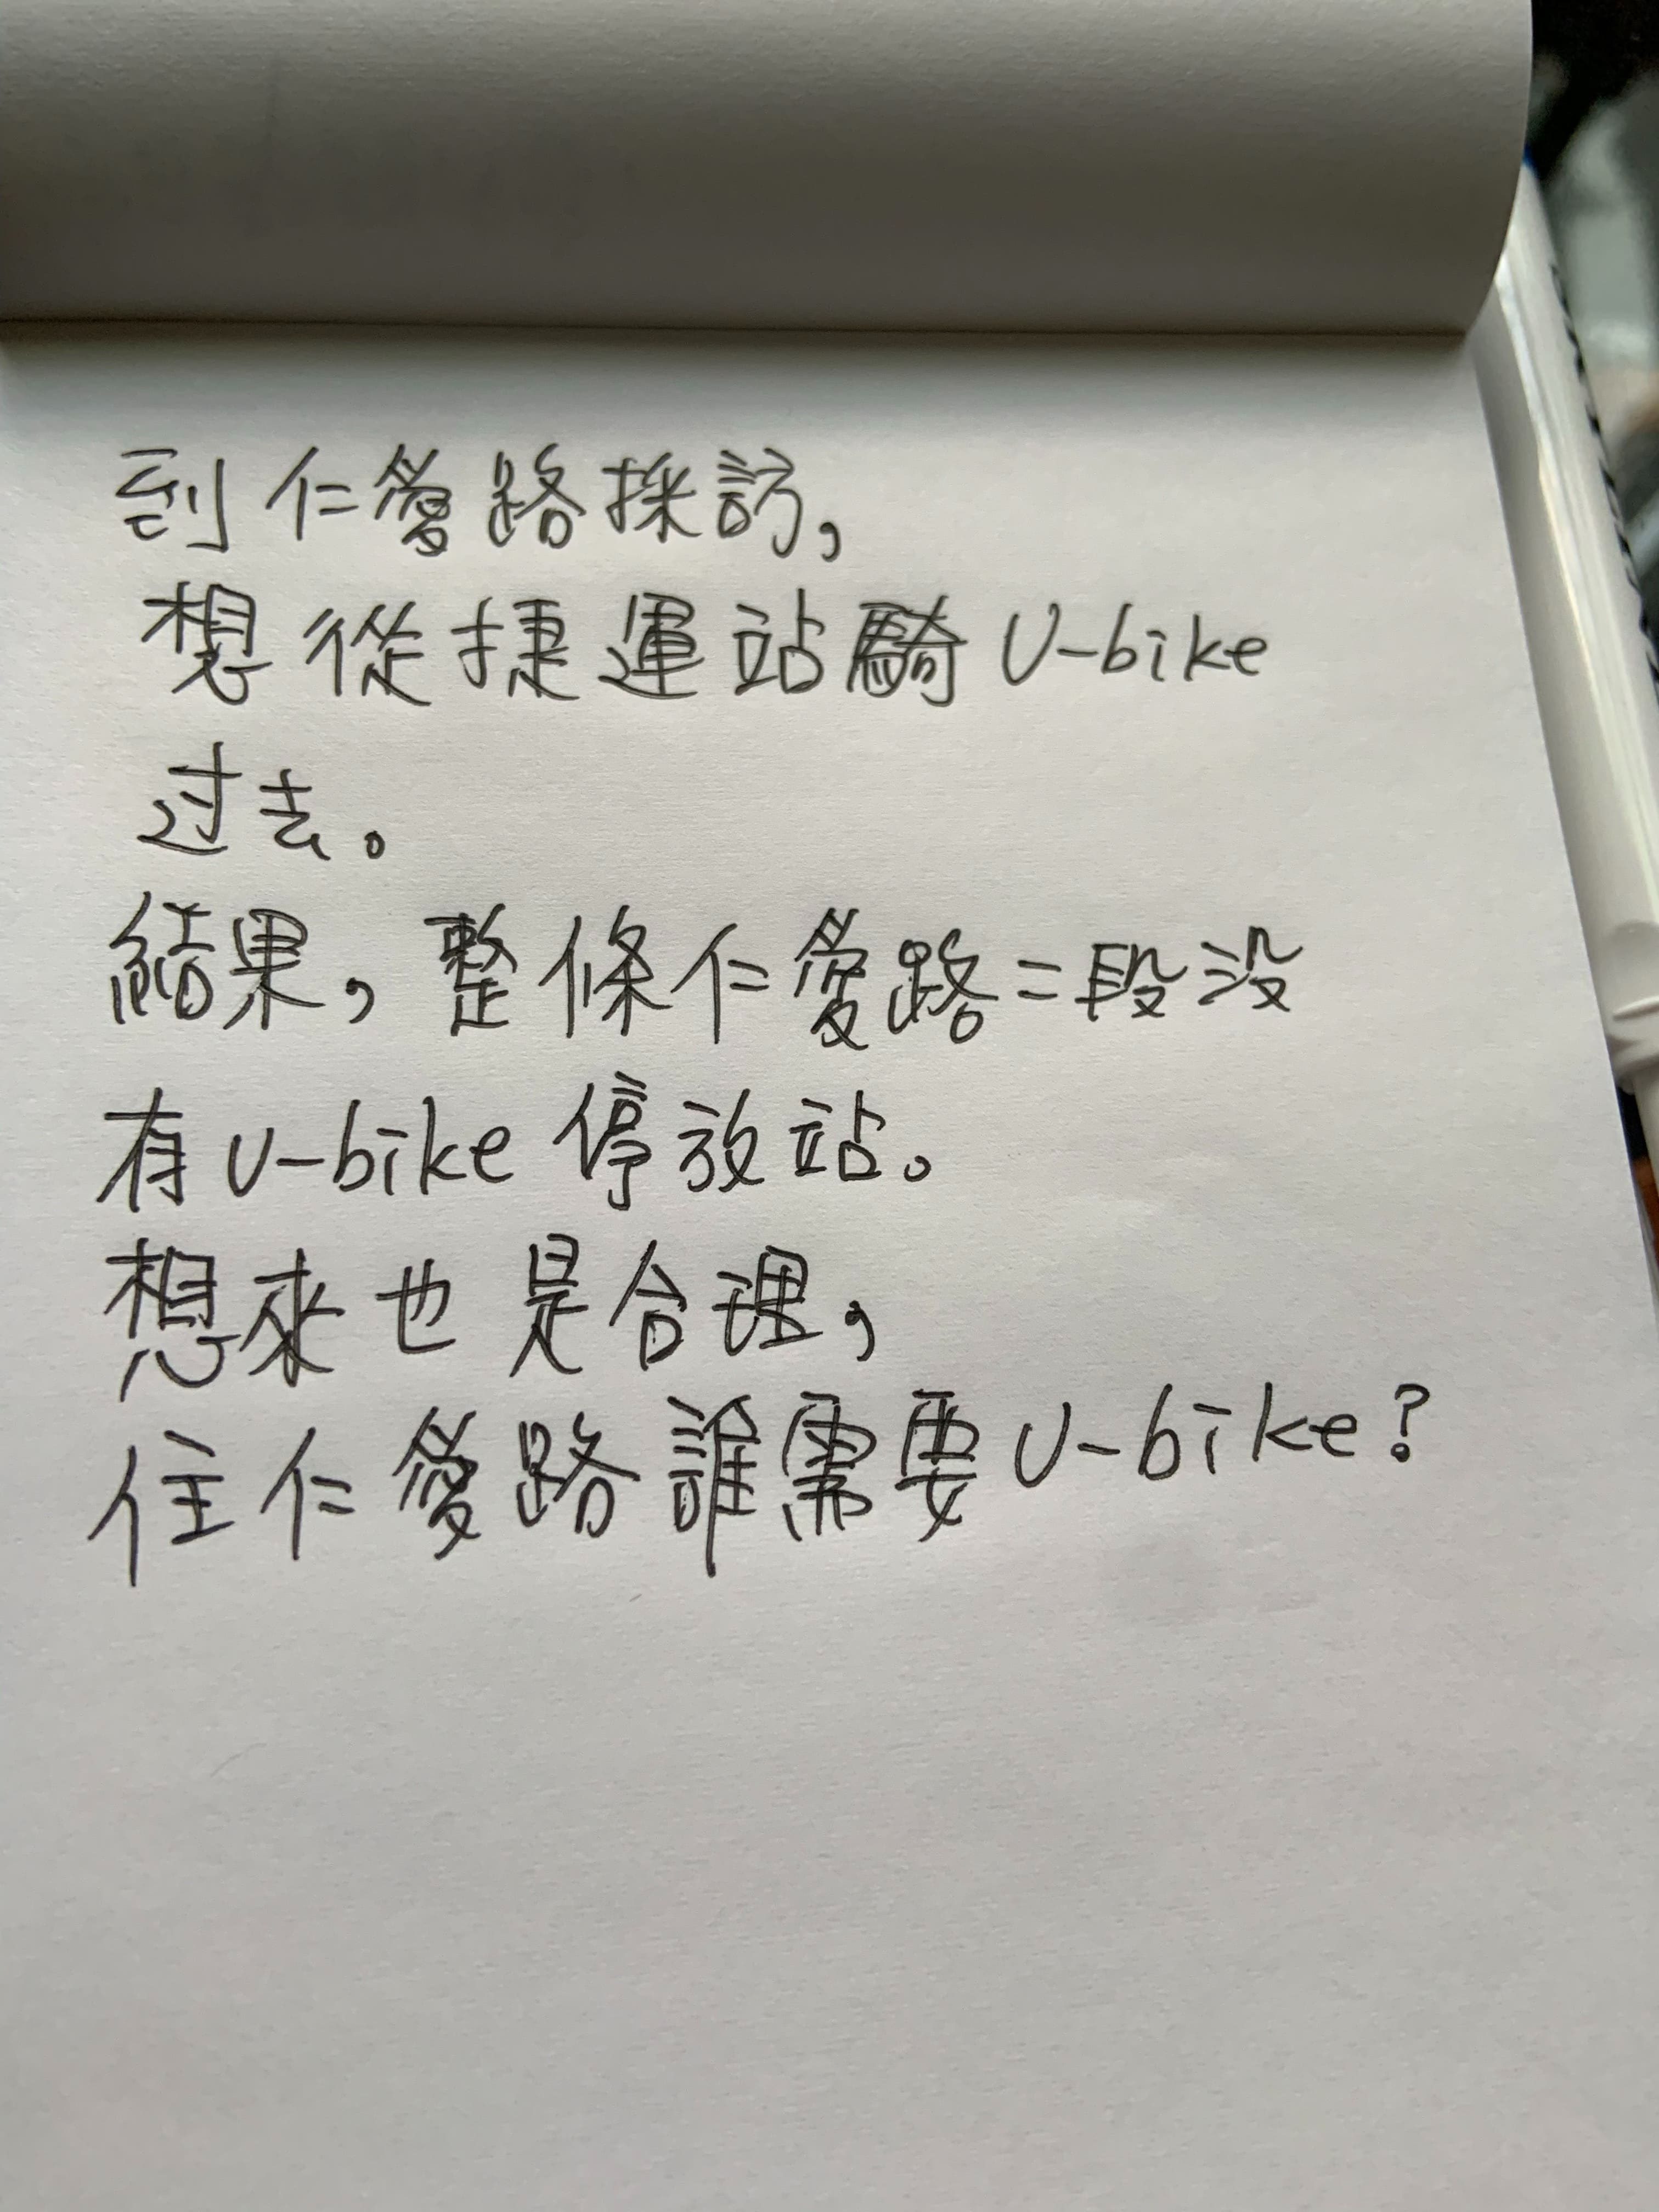 到仁愛路採訪，
想從捷運站騎U-bike
过去。
結果，整條仁愛路二段没
有U-bike停放站。
想來也是合理，
住仁愛路誰需要U-bike？